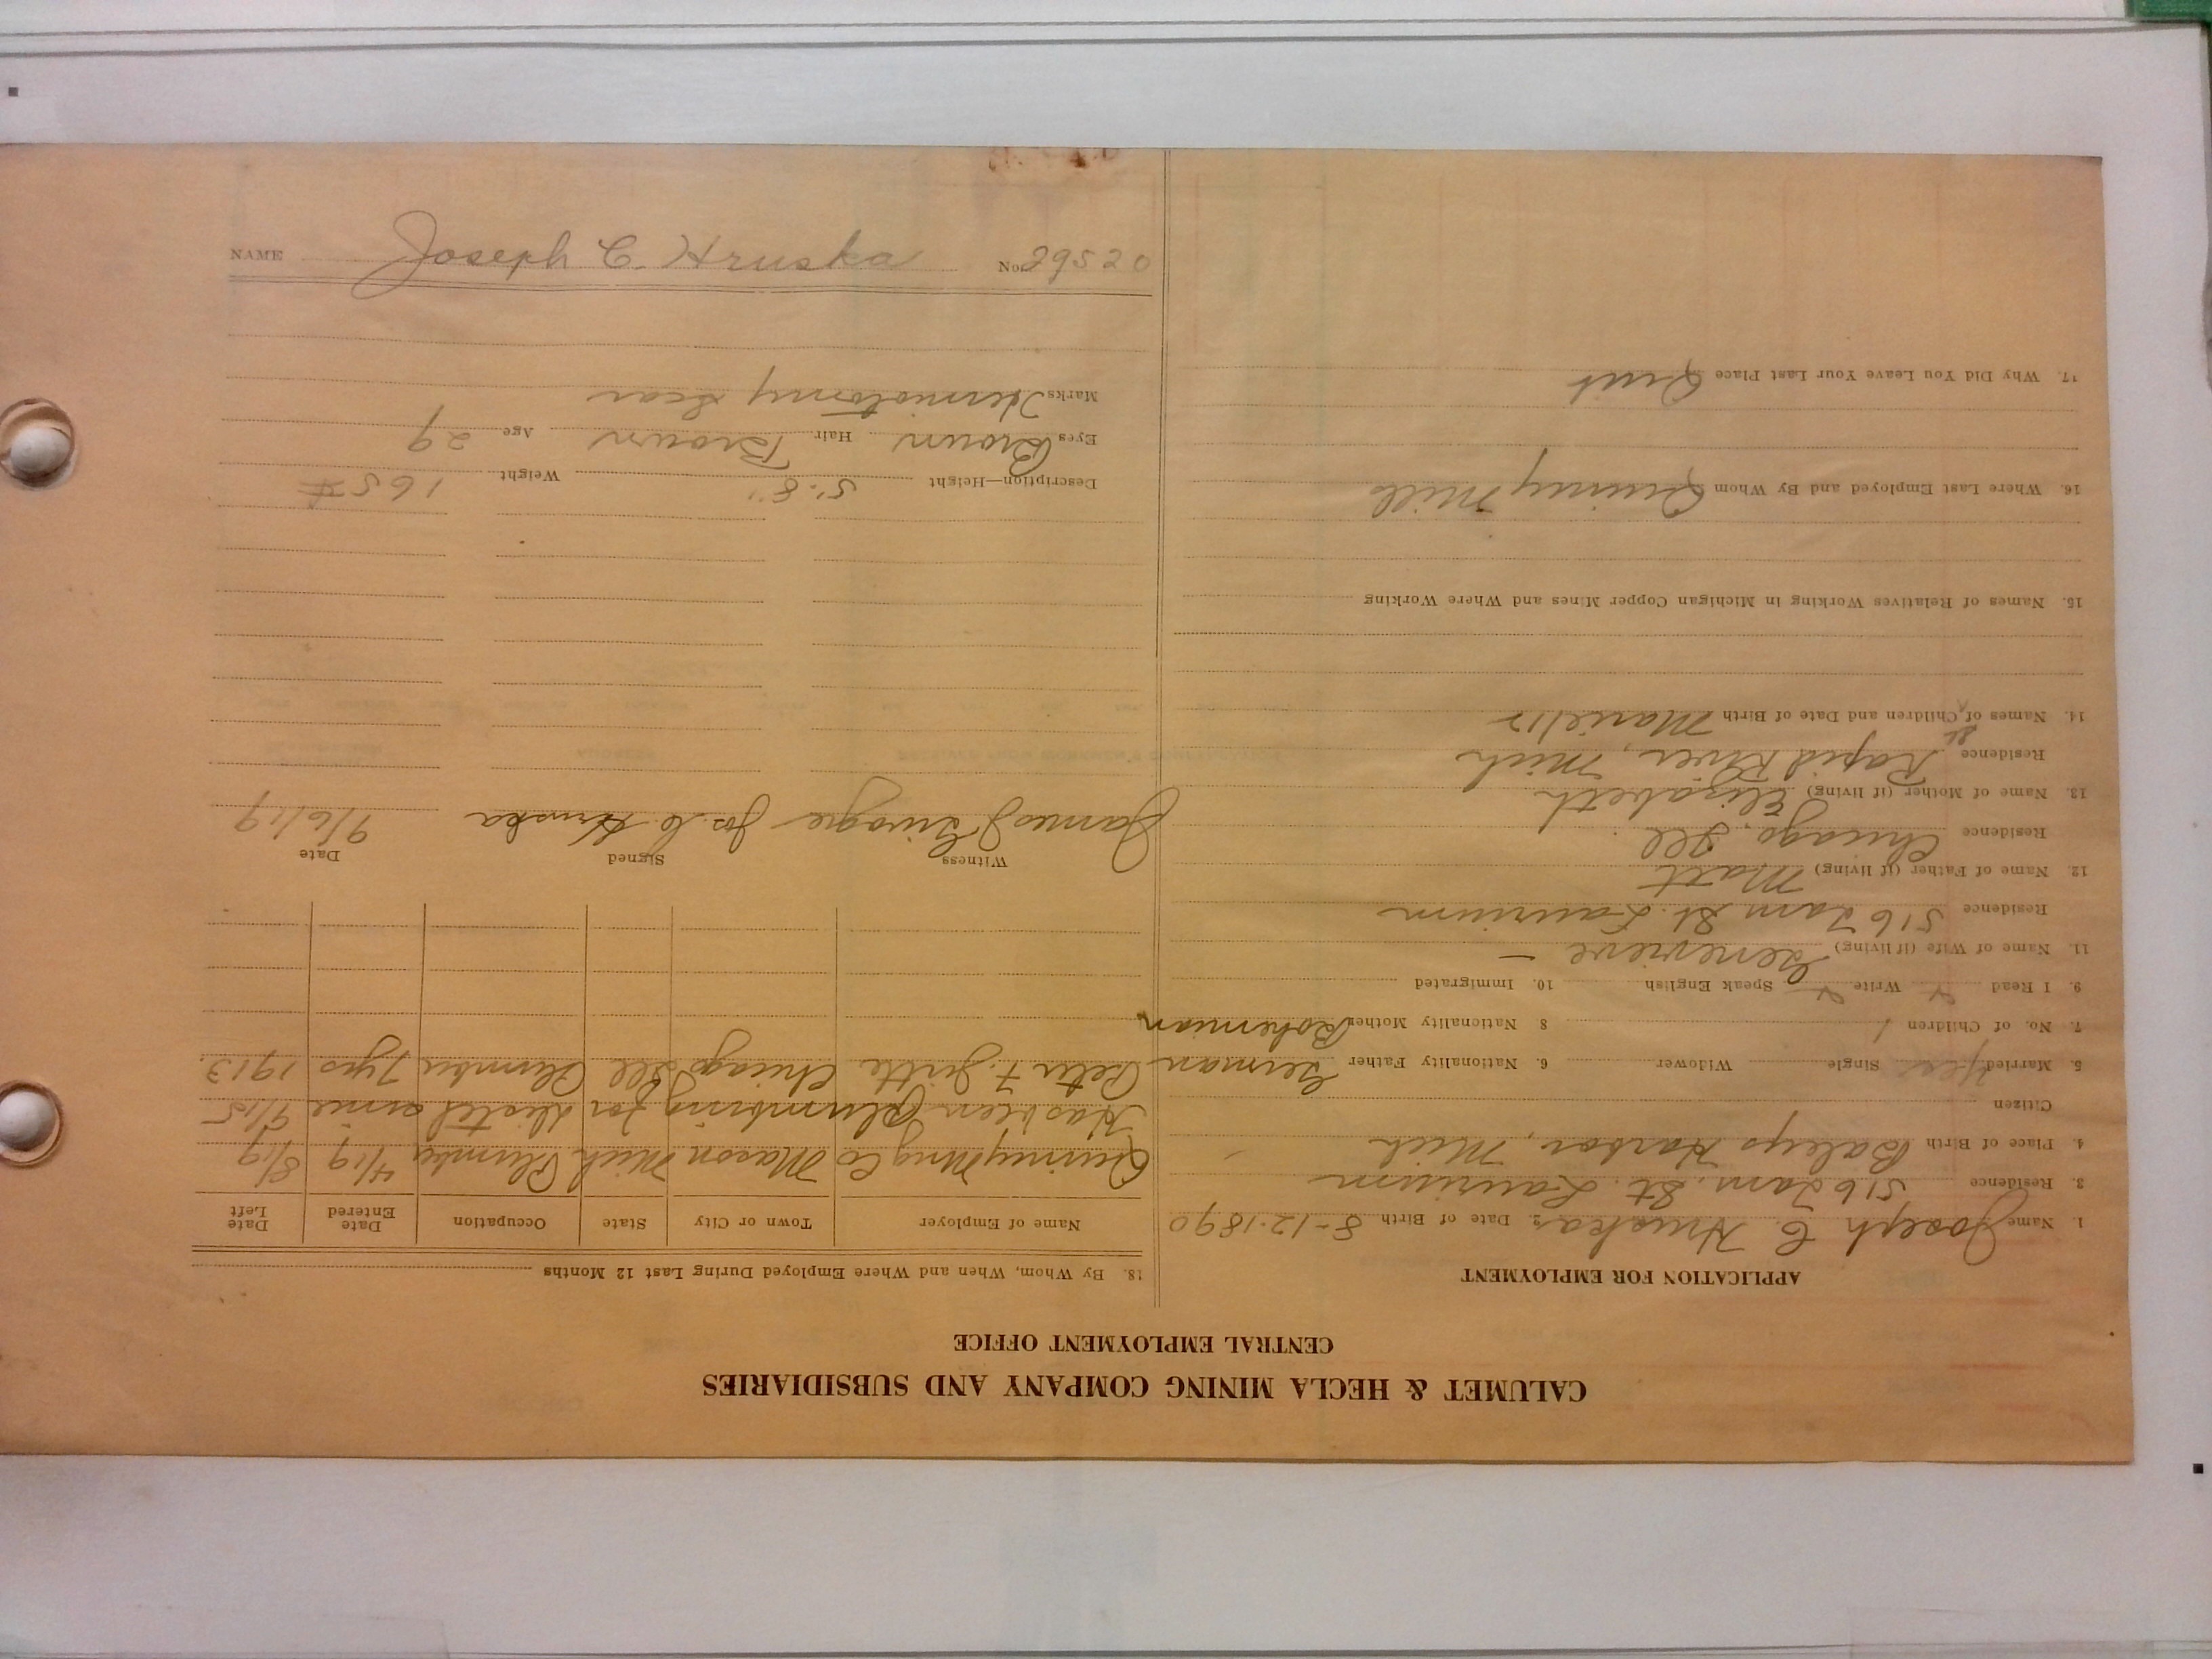 CALUMET & HECLA MINING COMPANY AND SUBSIDIARIES
CENTRAL EMPLOYMENT OFFICE
APPLICATION FOR EMPLOYMENT
1. Name Joseph C. Hruska 2. Date of Birth 8-12-1890
3. Residence 516 Tam. St. Laurium
4. Place of Birth Baleys Harbor, Mich
Citizen
5. Married yes Single Widower 6. Nationality Father German
7. No. of Children 1 8 Nationality Mother Bohemian
9. I Read Write Speak English 10. Immigrated
11. Name of Wife (if living) Genevieve
Residence 516 Tam St. Laurium
12. Name of Father (if living) Matt
Residence Chicago, Ill
13. Name of Mother (if living) Elizabeth
Residence Rapid River, Mich
14. Names of Children and Date of Birth Marie 1 1/2
15. Names of Relatives Working in Michigan Copper Mines and Where Working
16. Where Last Employed and By Whom Quincy Mill
17. Why Did You Leave Your Last Place Quit
18. By Whom, When and Where Employed During Last 12 Months
Name of Employer Town or City State Occupation Date Entered Date Left
Quincy Mng Co Mason Mich Plumber 4/19 8/19
Has been plumbing for since 9/15
Peter F. Chicago Ill Plumber 7 yrs 1913
Witness Signed Date
James Jos. C. Hruska 9/6/19
Description—Height 5'.8" Weight 165 #
Eyes Brown Hair Brown Age 29
Marks Herniotomy Scar
NAME Joseph C. Hruska No. 29520